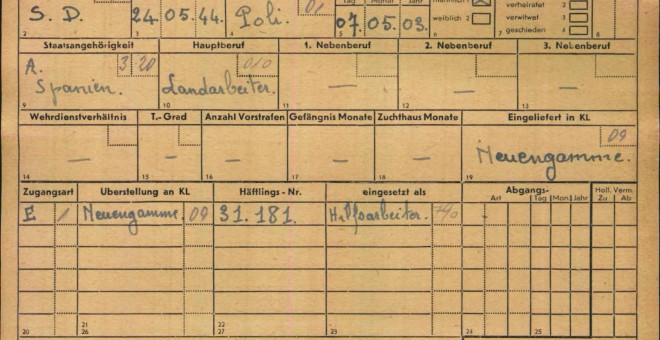 Tag Monat Jahr männlich 1 verheiratet 2
S. D. 24 05. 44. Poli. 01 07. 05 03. weiblich 2 verwitwet 3
geschieden 4
2 3 4 5 6 7 8
Staatsangehörigkeit Hauptberuf 1. Nebenberuf 2. Nebenberuf 3. Nebenberuf
A. 3 20 0/0
Spanien. Landarbeiter. — — —
9 10 11 12 13
Wehrdienstverhältnis T.-Grad Anzahl Vorstrafen Gefängnis Monate Zuchthaus Monate Eingeliefert in KL
09
— — — — — Neuengamme.
14 15 16 17 18 19
Zugangsart Überstellung an KL Häftlings-Nr. eingesetzt als Abgangs- Holl. Verm.
Art Tag Mon Jahr Zu Ab
E 1 Neuengamme. 09 31.181. Hilfsarbeiter.
20 21 22 23 24 25
26 27 28